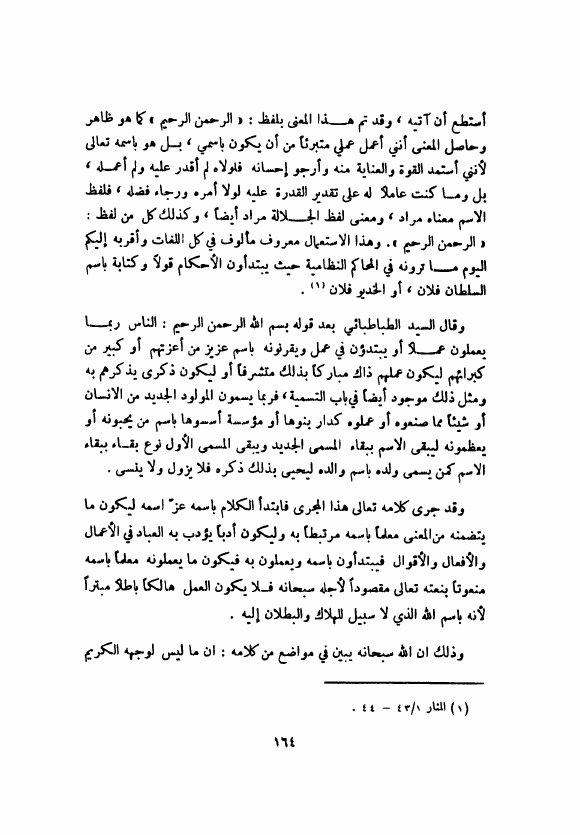 أستطع أن آتيه ، وقد تم هــذا المعنى بلفظ : « الرحمن الرحيم » كما هو ظاهر
وحاصل المعنى أنني أعمل عملي متبرئاً من أن يكون باسمي ، بــل هو باسمه تعالى
لأنني أستمد القوة والعناية منه وأرجو إحسانه فلولاه لم أقدر عليه ولم أعمــله ،
بل ومــا كنت عاملاً له على تقدير القدرة عليه لولا أمره ورجاء فضله ، فلفظ
الاسم معناه مراد ، ومعنى لفظ الجــلالة مراد أيضاً ، وكذلك كل من لفظ :
« الرحمن الرحيم » . وهذا الاستعمال معروف مألوف في كل اللغات وأقربه إليكم
اليوم مــا ترونه في المحاكم النظامية حيث يبتدأون الأحكام قولاً وكتابة باسم
السلطان فلان ، أو الخديو فلان (١) .
وقال السيد الطباطبائي بعد قوله بسم الله الرحمن الرحيم : الناس ربمــا
يعملون عمــلا أو يبتدؤن في عمل ويقرنونه باسم عزيز من أعزتهم أو كبير من
كبرائهم ليكون عملهم ذاك مباركاً بذلك متشرفاً أو ليكون ذكرى يذكرهم به
ومثل ذلك موجود أيضاً في باب التسمية، فربما يسمون المولود الجديد من الانسان
أو شيئاً مما صنعوه أو عملوه كدار بنوها أو مؤسسة أسسوها باسم من يحبونه أو
يعظمونه ليبقى الاسم ببقاء المسمى الجديد ويبقى المسمى الأول نوع بقــاء ببقاء
الاسم كمن يسمى ولده باسم والده ليحيى بذلك ذكره فلا يزول ولا ينسى .
وقد جرى كلامه تعالى هذا المجرى فابتدأ الكلام باسمه عزّ اسمه ليكون ما
يتضمنه من المعنى معلماً باسمه مرتبطاً به وليكون أدباً يؤدب به العباد في الأعمال
والأفعال والأقوال فيبتدأون باسمه ويعملون به فيكون ما يعملونه معلماً باسمه
منعوتاً بنعته تعالى مقصوداً لأجله سبحانه فــلا يكون العمل هالكاً باطلاً مبتراً
لأنه باسم الله الذي لا سبيل للهلاك والبطلان إليه .
وذلك ان الله سبحانه يبين في مواضع من كلامه : ان ما ليس لوجهه الكريم
(١) المنار ٤٣/١ – ٤٤ .
١٦٤